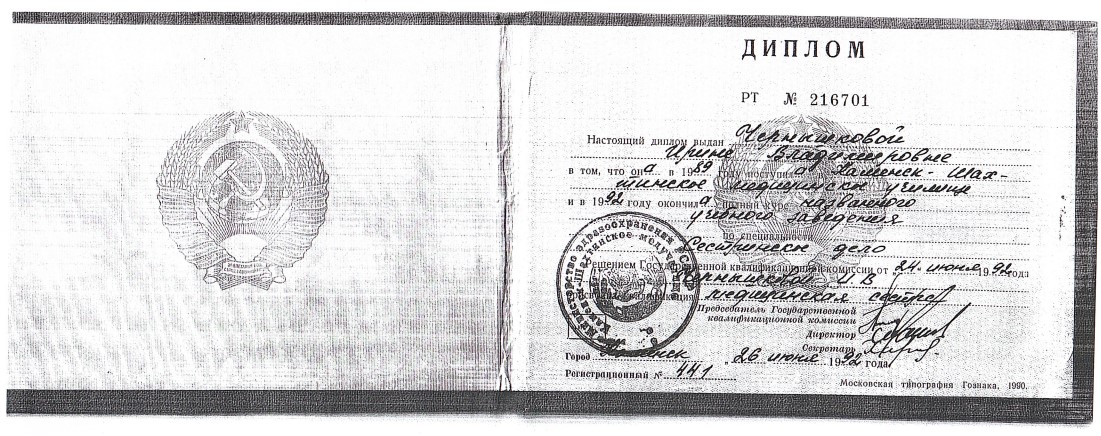 ДИПЛОМ
РТ № 216701
Настоящий диплом выдан Чернышковой
Ирине Владимировне
в том, что она в 1989 году поступила в Каменск-Шах-
тинское медицинское училище
и в 1992 году окончила полный курс названного
учебного заведения
по специальности
Сестринское дело
Решением Государственной квалификационной комиссии от 24 июня 1992 года
Чернышковой И В
квалификация медицинская сестра
Председатель Государственной
квалификационной комиссии
Директор
Секретарь
Город Каменск 26 июня 1992 года
Регистрационный № 441
Московская типография Гознака. 1990.
Министерство здравоохранения РСФСР